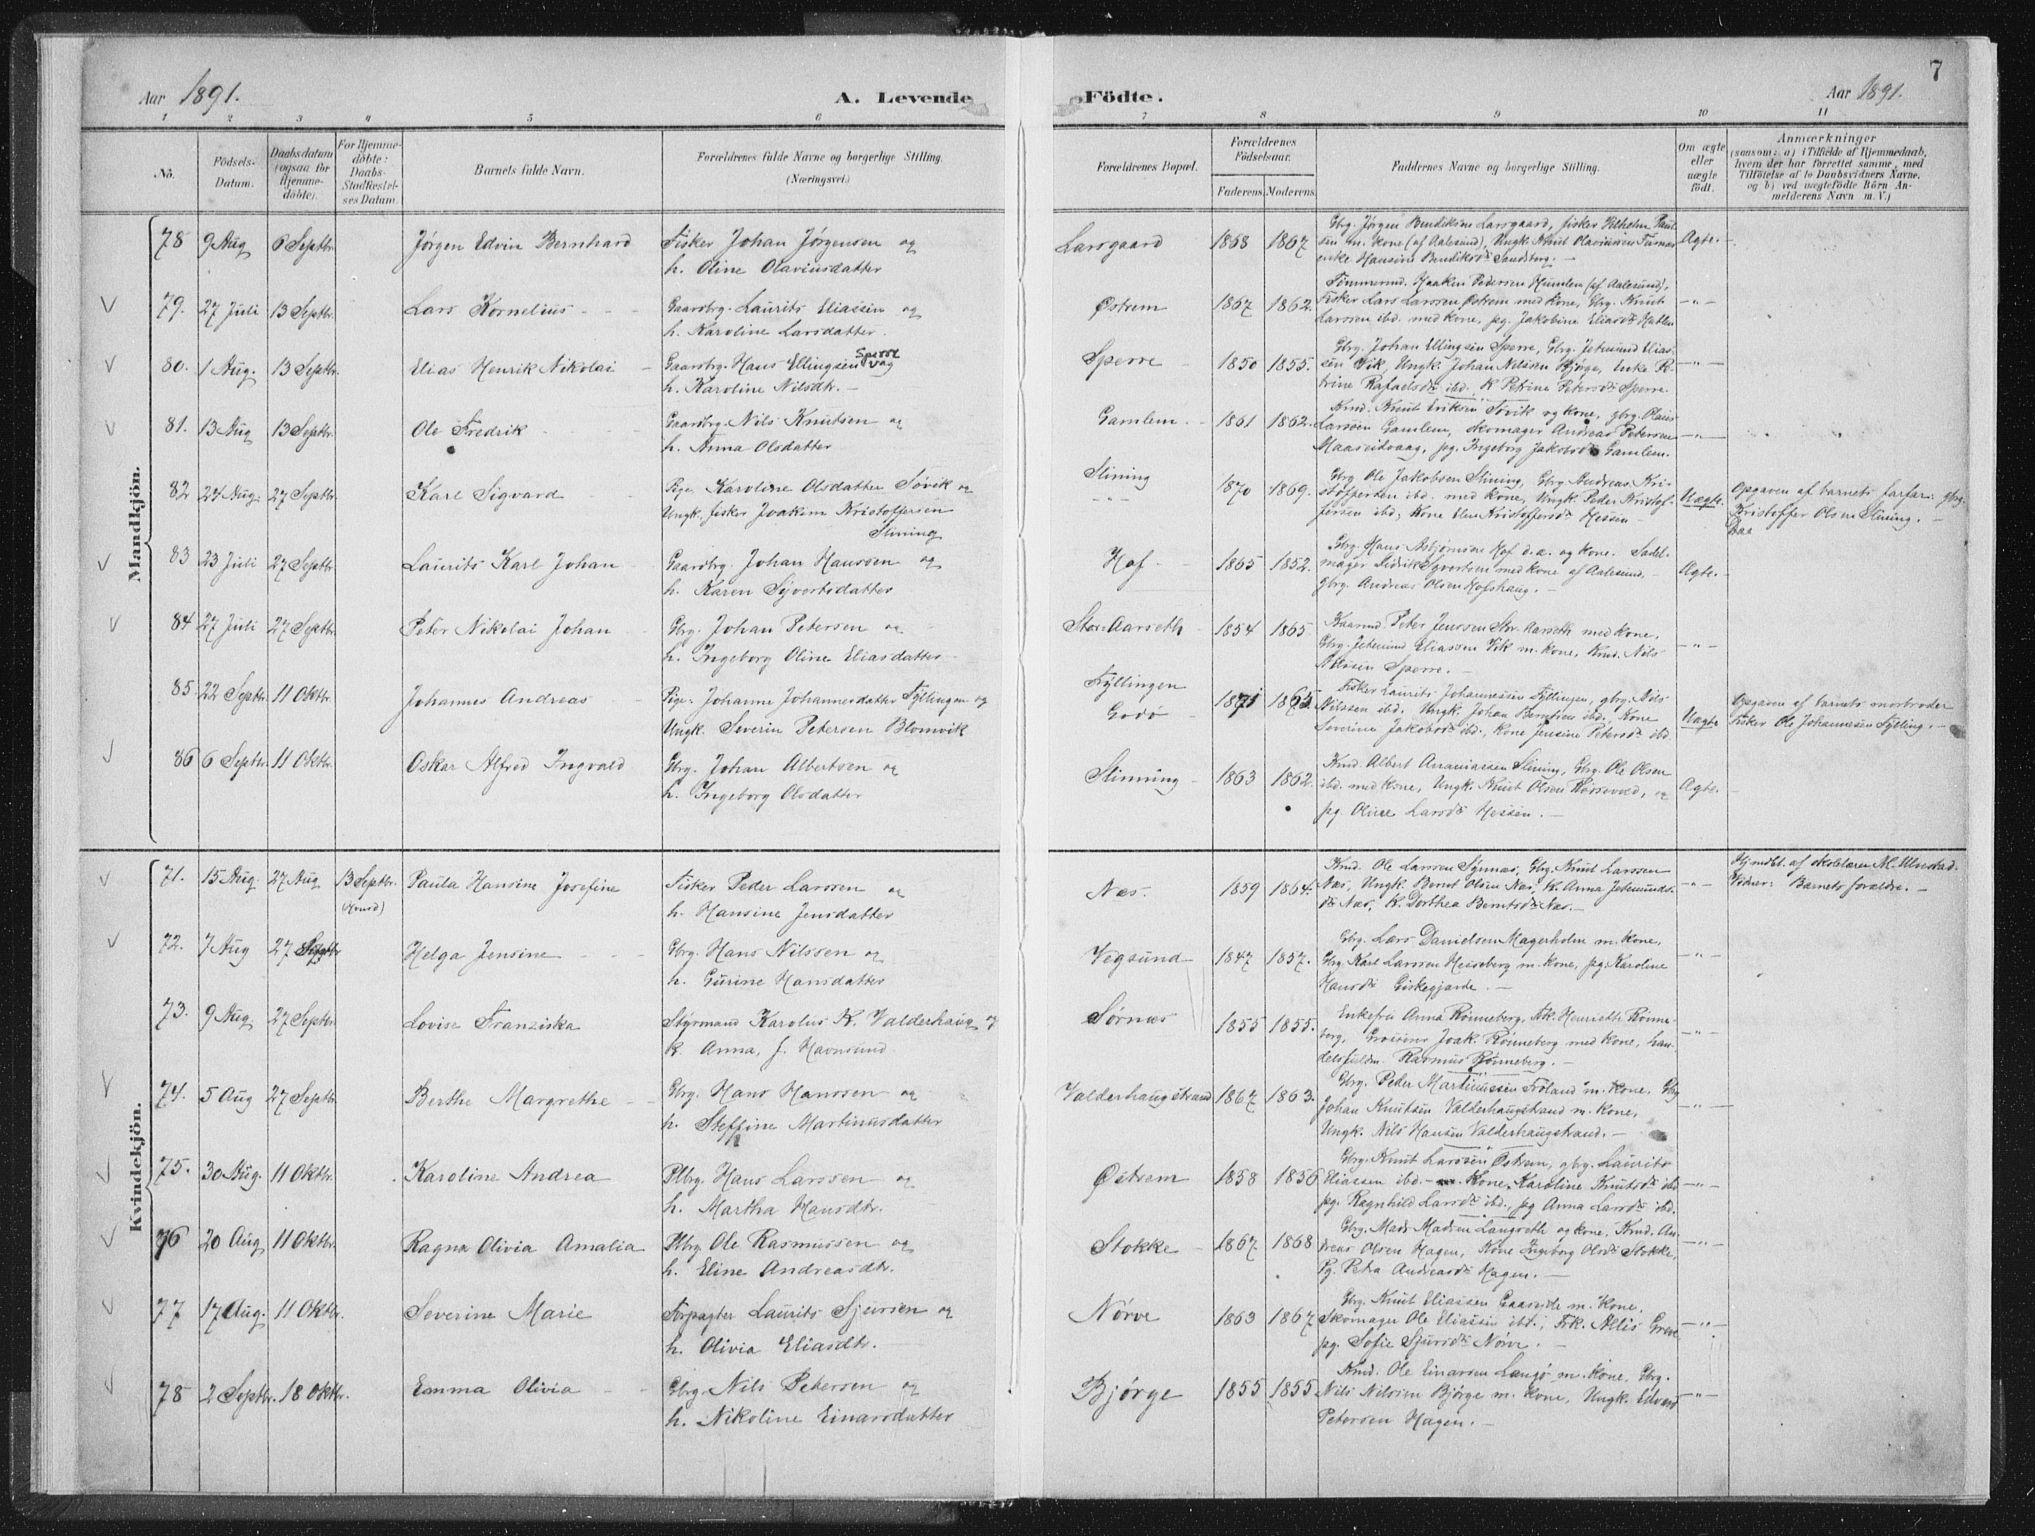 Aar 1891.
A. Levende
Födte.
Aar 1891.
7
1 2 3 4 4 5 6 7 8 9 10 11
No.
Födsels-
Datum.
Daabsdatum
(ogsaa for
Hjemme-
döbte).
For Hjemme-
döbte:
Daabs-
Stadfæstel-
ses Datum.
Barnets fulde Navn.
Forældrenes fulde Navne og borgerlige Stilling.
(Næringsvei.)
Forældrenes Bopæl.
Forældrenes
Födselsaar.
Faderens.
Moderens.
Faddernes Navne og borgerlige Stilling.
Om ægte
eller
uægte
födt.
Anmærkninger
(saasom: a) i Tilfælde af Hjemmedaab,
hvem der har forrettet samme, med
Tilföielse af to Daabsvidners Navne,
og b) ved uægtefödte Börn An-
melderens Navn m. V.)
Mandkjön.
78 9 Aug 6 Septbr. Jørgen Edvin Bernhard
Fisker Johan Jørgensen og
h. Oline Olaviusdatter
Larsgaard 1868 1867
Gbg. Jørgen Bendiksen Larsgaard, fisker Vilhelm Paul-
sen m. Kone (af Aalesund), Ungk. Knut Olavsen
enke Hansine Bendiksdt Sandberg. —
Ægte. —
79. 27 Juli 13 Septbr. Lars Kornelius
Gaardbrg. Laurits Eliassen og
h. Karoline Larsdatter.
Østrem 1867 1862.
Tømmermd. Haaken Pedersen Humlen (af Aalesund),
Fisker Lars Larssen Østrem med Kone, Gbrg. Knut
Larssen ibd. med Kone, pg. Jakobine Eliasdt Hatlen
— " —
80. 1 Aug. 13 Septbr. Elias Henrik Nikolai
Gaardbrg. Hans Ellingsen Sperre
vag
h. Karoline Nilsdt. —
Sperre 1850 1855.
Gbrg. Johan Ellingsen Sperre, Gbrg. Jetmund Elias-
sen Vik, Ungk. Johan Nilssen Bjørge, Enke Pe-
trine Rafaelsdt ibd. K. Petrine Petersdt Sperre.
— " —
81. 13 Aug 13 Septbr. Ole Fredrik
Gaardbrg. Nils Knutsen og
h. Anna Olsdatter
Gamlem. 1861 1862.
Kmd. Knut Eriksen Søvik og Kone, gbrg. Olaus
Larssen Gamlem, skomager Andreas Petersen
Maaseidvaag, pg. Ingeborg Jakobsdt Gamlem.
— " —
82 24 Aug. 27 Septbr. Karl Sigvard
Pige Karoline Olsdatter Søvik og
Ungk. fisker Joakim Kristoffersen
Slining
Slining
— " —
1870 1869.
Gbrg Ole Jakobsen Slining, Gbrg Andreas Kri-
stoffersen ibd. med Kone, Ungk. Peder Kristof-
fersen ibd, Kone Elen Kristoffersdt Hessen —
Uægte.
Opgaven af barnets farfar: gbrg.
Kristoffer Olsen Slining. —
83 23 Juli 27 Septbr. Laurits Karl Johan
Gaardbrg. Johan Hanssen og
h. Karen Sivertsdatter
Hof. 1865 1852.
Gbrg. Hans Asbjørnsen Hof d. a. og Kone. Sadel-
mager Didrik Syvertsen med Kone af Aalesund, —
gbrg. Andreas Olsen Hofshaug. —
Ægte.
84 27 Juli 27 Septbr. Peter Nikolai Johan
Gbrg. Johan Petersen og
h. Ingeborg Oline Eliasdatter
Stor-Aarseth 1854 1865.
Baamd Peter Jenssen Stor-Aarseth med Kone,
Gbrg. Jetmund Eliassen Vik m. Kone, Kmd. Nils
Sperre. —
— " —
85. 22 Septbr. 11 Oktbr. Johannes Andreas
Pige: Johanne Johannesdatter Fyllingen og
Ungk. Severin Petersen Blomvik
Fyllingen
Godø
1871 1865
Fisker Laurits Johannessen Fyllingen, gbrg. Nils
Nilssen ibd. Ungk. Johan Berntsen ibd., Kone
Severine Jakobsdt ibd., Kone Jensine Petersdt ibd.
Uægte
Opgaven af barnets morbroder
Fisker Ole Johannessen Fylling. —
86 6 Septbr. 11 Oktbr. Oskar Alfred Ingvald
Gbrg. Johan Albertsen og
h. Ingeborg Olsdatter
Slinning 1863 1862.
Kmd. Albert Ananiassen Slining, Gbrg. Ole Olsen
ibd. med Kone, Ungk. Knut Olsen og
pg. Oline Larsdt Hessen. —
Ægte.
Kvindekjön.
71. 15 Aug. 27 Aug 13 Septbr. Paula Hansine Josefine
Fisker Peder Larssen og
h. Hansine Jensdatter
Næs. 1859 1864.
Kmd. Ole Larssen Synnæs, Gbrg. Knut Larssen
Næs, Ungk. Bernt Olsen Næs, K. Anna Jetmunds-
dt Næs, K. Dorthea Berntsdt Næs. —
— " —
Hjemdbt. af skolelærer M. Ulvestad.
Vidner: Barnets forældre. —
72. 7 Aug 27 Septbr Helga Jensine
Gbrg. Hans Nilssen og
h. Gurine Hansdatter
Vegsund 1847 1857.
Gbrg. Lars Danielsen Magerholm m. Kone,
Gbrg. Karl Larssen Hesseberg m. Kone, pg. Karoline
Hansdt Giskegjærde. —
— " —
73. 9 Aug. 27 Septbr. Lovise Franziska
Styrmand Karolus K. Valderhaug og
K. Anna, f. Havnsund
Sørnæs 1855 1855.
Enkefru Anna Rønneberg, Frk. Henriette Rønne-
berg, Grosserer Joak. Rønneberg med Kone, han-
delsfuldm. Rasmus Rønneberg. —
— " —
74. 5 Aug 27 Septbr Berthe Margrethe
Gbrg. Hans Hanssen og
h. Steffine Martinusdatter
Valderhaugstrand 1867 1863.
Gbrg. Peder Martinussen Frøland m. Kone, Gbg
Johan Knutsen Valderhaugstrand m. Kone,
Ungk. Nils Hansen Valderhaugstrand. —
— " —
75. 30 Aug. 11 Oktbr. Karoline Andrea
Plbrg. Hans Larssen og
h. Martha Hansdtr.
Østrem 1858 1856
Gbrg. Knut Larssen Østrem, gbrg. Laurits
Eliassen ibd. — Kone, Karoline Knutsdt ibd
pg. Ragnhild Larsdt ibd., pg Anna Larsdt ibd.
— " —
76 20 Aug 11 Oktbr. Ragna Olivia Amalia
Plbrg Ole Rasmussen og
h. Eline Andreasdtr.
Stokke 1867 1868
Gbrg. Mads Madsen Langseth og Kone, Kmd. An-
dreas Olsen Hagen, Kone Ingeborg Olsdt Stokke,
Pg. Petra Andreasdt Hagen. —
— " —
77 17 Aug. 11 Oktbr. Severine Marie
Forpagter Laurits Sjursen og
h. Olivia Eliasdtr.
Nørve 1863 1867
Gbrg. Knut Eliassen Gaaseide m. Kone,
Skomager Ole Eliassen ibd., Frk. Allis
pg. Sofie Sjursdt Nørve. —
— " —
78 2 Septbr. 18 Oktbr. Emma Olivia
Gbrg. Nils Petersen og
h. Nikoline Einarsdatter
Bjørge 1855 1855
Kmd. Ole Einarsen Langø m. Kone, Gbrg.
Nils Nilssen Bjørge m. Kone, Ungk. Edvard
Petersen Hagen. —
— " —